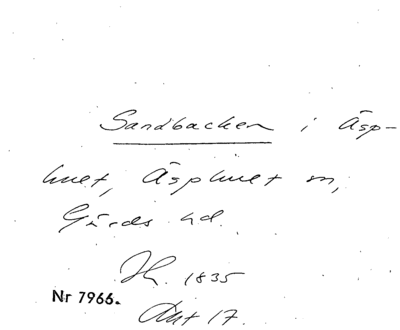 Sandbacken i Äsp-
huet, Äsphuet sn,
Gärds hd.
1835
Nr 7966.
Akt 17.